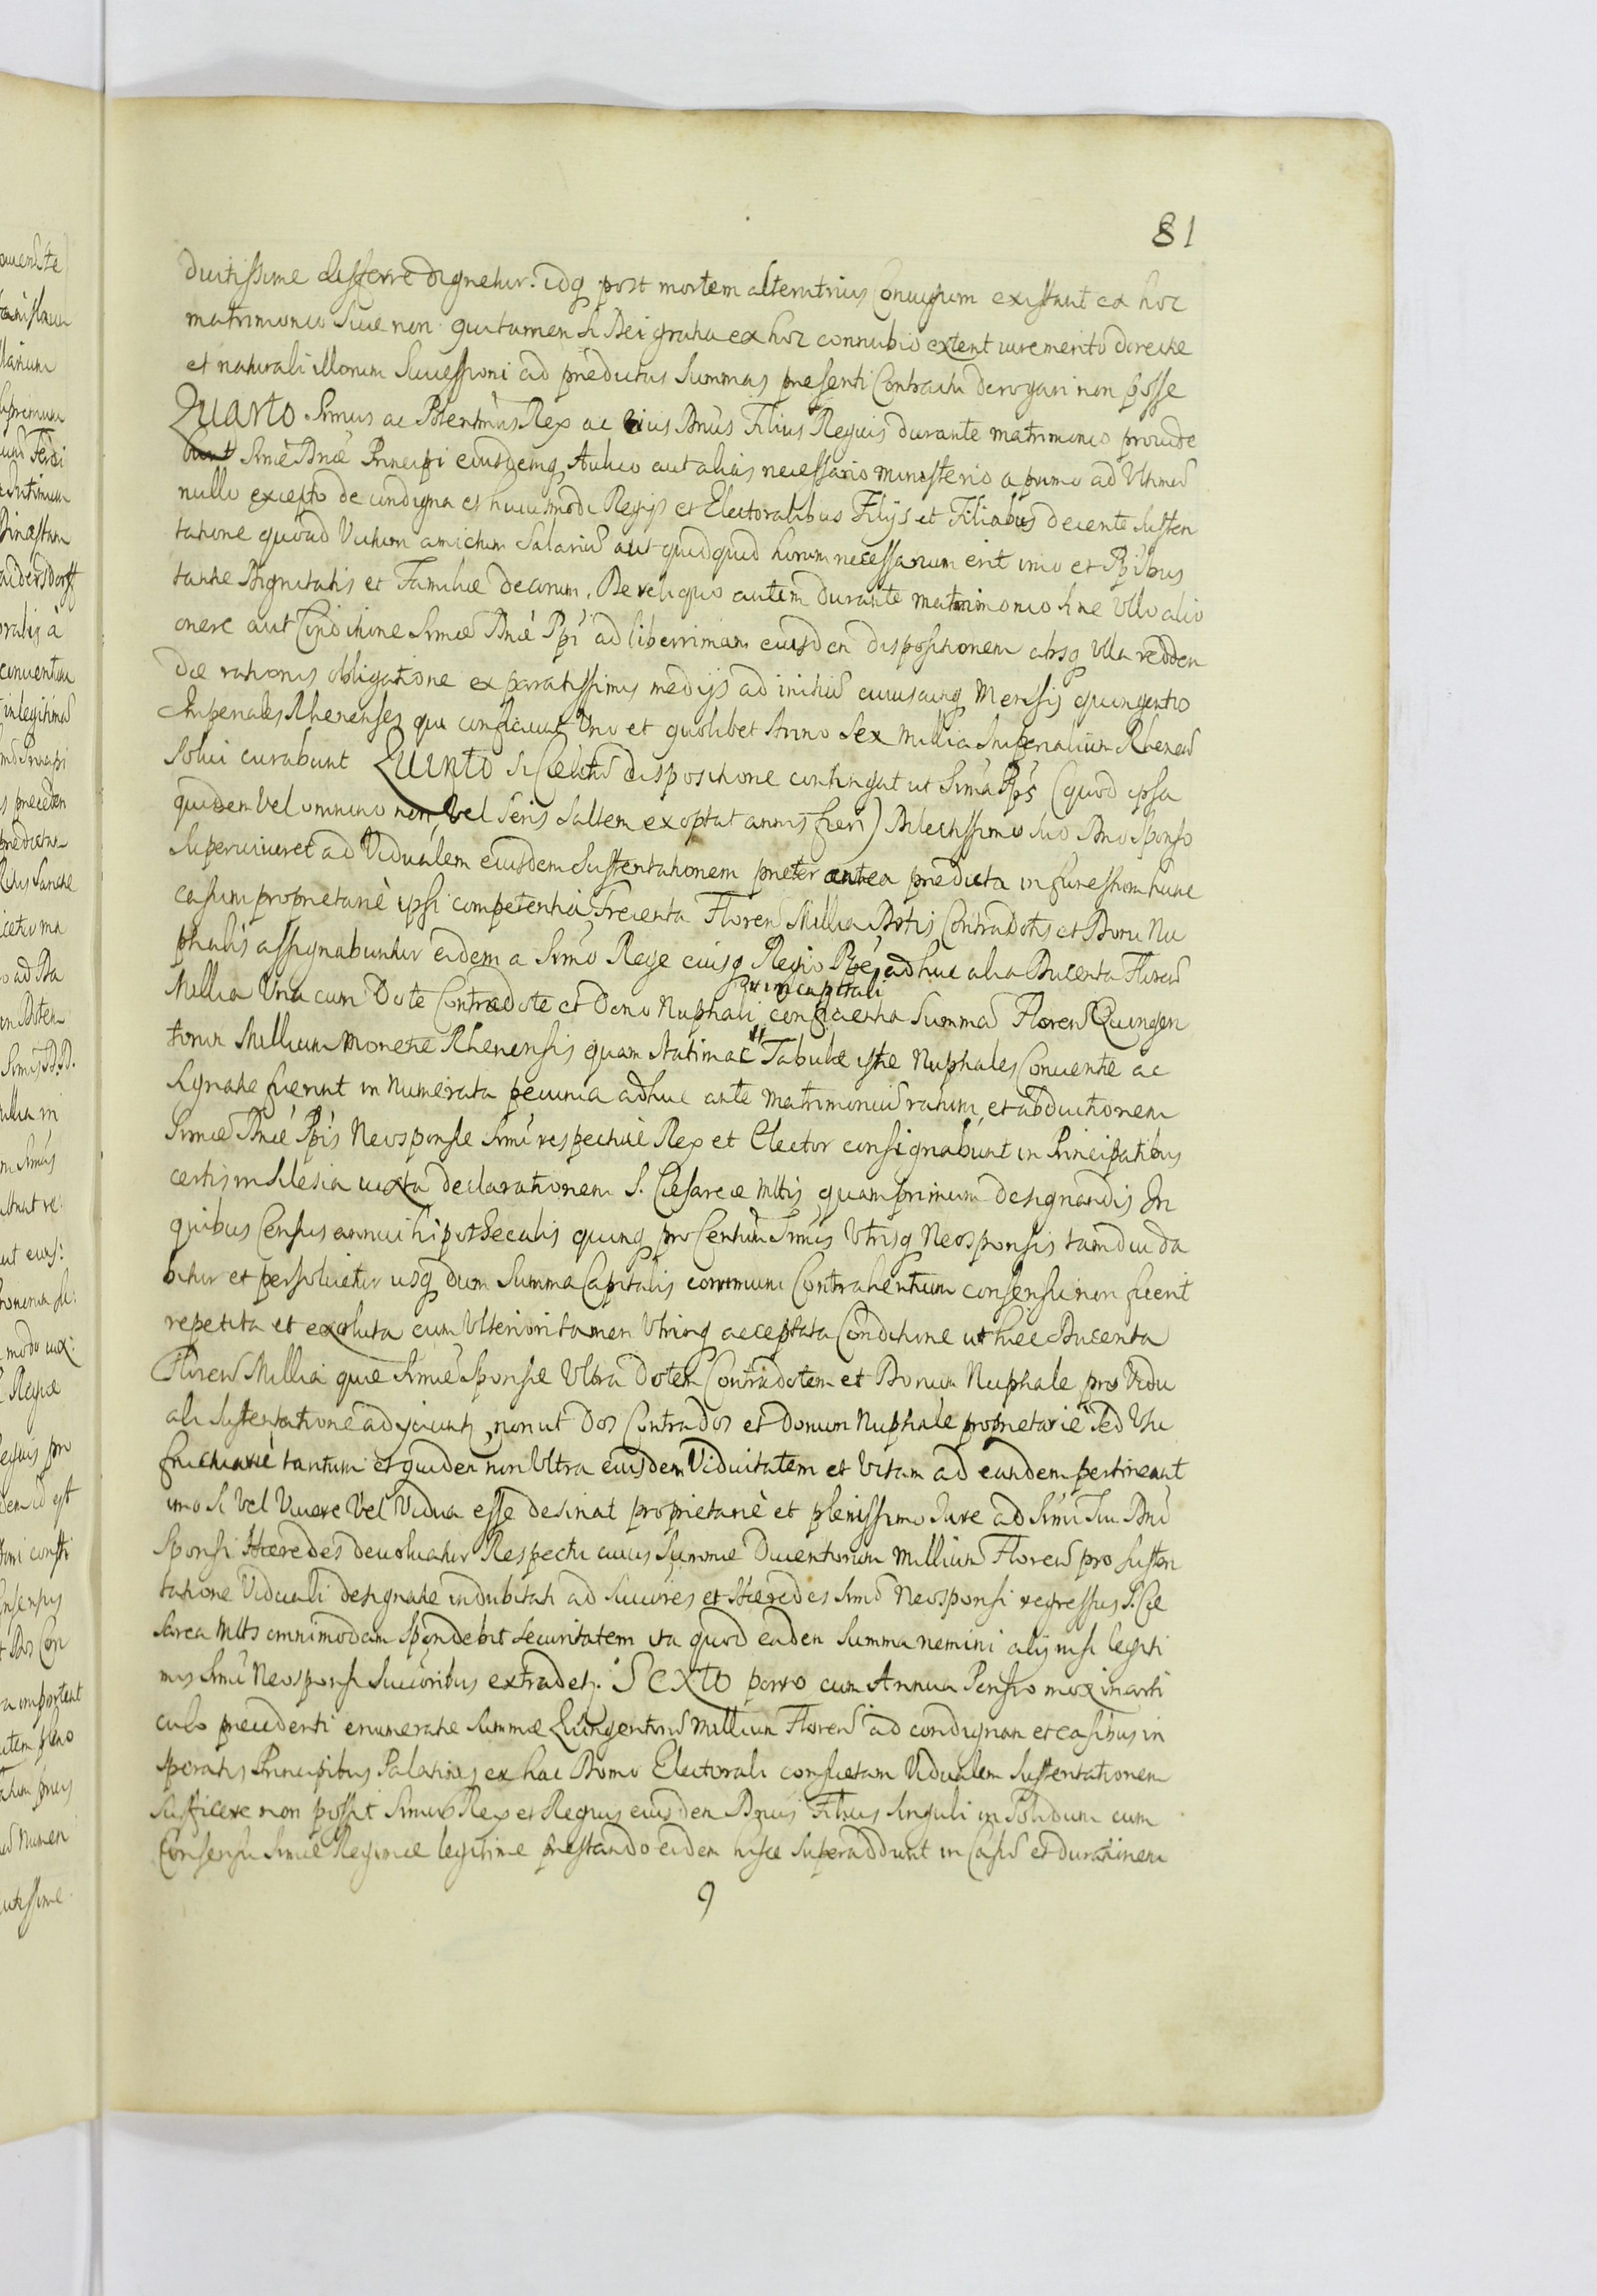 81
ductissime differre dignetur. idq post mortem alterutrius Coniugum existant ex hoc
matrimonio Siue non. qui tamen si Dei gratia ex hoc connubio extent iure merito directae
et naturali illorum Successioni ad praedictas Summas presenti Contractu derogari non posse
Quarto Srmus ac Potentmus Rex ac eius Dnus Filius Regius durante matrimonio prouide
bunt Smae Dnae Principi eiusdemq Aulico aut alias necessario ministerio a primo ad Vltimu
nullo excepto de condigna et huiusmodi Regijs et Electoralibus Filijs et Filiabus decente Susten
tatione quoad Victum amictum Salariu aut quidquid horum necessarium erit imo et Ppibus
tantae Dignitatis et Familiae decorum. De reliquo autem durante matrimonio sine Vllo alio
onere aut Conditione Srmae Dnae Ppi ad liberrimam eiusdem dispositionem absq Vlla redden
dae rationis obligatione ex paratissimis medijs ad initiu cuiuscunq Mensis quingentos
Imperiales Rhenenses qui conficiunt Vno et quolibet Anno Sex Millia Imperialium Rhenen
Solui curabunt Quinto si Caelitus dispositione contingat ut Srma Ppis (quod ipsa
quidem Vel omnino non, Vel Seris Saltem exoptat annis fieri) Dilectissimo suo Dno Sponso
Superuiueret ad Vidualem eiusdem Sustentationem praeter antea praedicta in funestum hunc
casum proprietariè ipsi competentia Trecenta Floren Millia Dotis Contradotis et Doni Nu
ptialis assignabuntur eidem a Srmo Rege eiusq Regio Ppe, adhuc alia Ducenta Floren
Millia Vna cum Dote Contradote et Dono Nuptiali conficientia Summa Floren Quingen
in capitali
torum Millium Monetae Rhenensis quam statim ac Tabulae istae Nuptiales Conuentae ac
signatae fuerint in Numerata pecunia adhuc ante Matrimoniu ratum, et abductionem
Srmae Dnae Ppis Neosponsae Srmi respectiuè Rex et Elector consignabunt in Principatibus
certis in Silesia iuxta declarationem S. Caesareae Mttis quam primum designandis In
quibus Census annui hipothecalis quinq pro Centum Srmis Vtrisq Neosponsis tamdiu da
bitur et persoluetur usq dum Summa Capitalis communi Contrahentium consensu non fuerit
repetita et exoluta cum Vlteriori tamen Vtrinq acceptata Conditione ut haec Ducenta
Floren Millia quae Srmae Sponsae Vltra Dotem Contradotem et Donum Nuptiale pro Vidu
ali sustentatione adijciuntur, non ut Dos Contrados et Donum Nuptiale proprietariè Sed Vsu
fructuariè tantum et quidem non Vltra eiusdem Viduitatem et Vitam ad eandem pertineant
imo si Vel Viuere Vel Vidua esse desinat proprietariè et plenissimo Iure ad Srmi Sui Dni
Sponsi Haeredes deuoluatur Respectu cuius Summae Ducentorum Millium Floren pro susten
tatione Viduali designatae indubitati ad Succores et Haeredes Srmi Neosponsi regressus S. Cae
sarea Mtts omnimodam Spondebit securitatem ita quod eadem Summa nemini alij nisi legiti
mis Srmi Neosponsi Succoribus extradetur. Sexto porro cum Annua Pensio mox in arti
culo praecedenti enumeratae summae Quingentoru Millium Floren ad condignam et casibus in
speratis Principibus Palatinis ex hac Domo Electorali consuetam Vidualem sustentationem
sufficere non possit Srmus Rex et Regius eiusdem Dnus Filius singuli in Solidum cum
Consensu Srmae Reginae legitime prestando eidem hisce Superaddunt in Casu et durationem
9